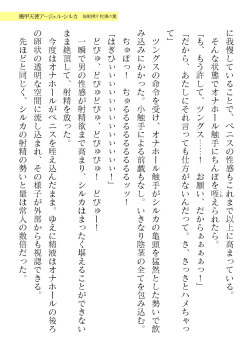 機甲天使アージェル・シルカ
に我慢していることで、ペニスの性感もこれまで以上に高まっている。
そんな状態でオナホール触手にちんぽを咥えられたら。
「も、もう許して、ツングス……！　お願い、だからぁぁぁぁっ！」
「だから、あたしだって仕方ないんだってば……。さ、さっさとハメちゃって」
ツングスの命令を受け、オナホール触手がシルカの亀頭を猛然とした勢いで飲み込みにかかった。小触手による前戯もなし。いきなり陰茎の全てを包み込む。
ちゅぼっ！　ちゅるるるるるるるッッ！
「はぎひぃいぃいぃいぃいぃいぃッッ！」
どびゅっ、どびゅ、どびゅびゅ！　どびゅーー！
一瞬で男の性感が射精欲まで高まり、シルカはまったく堪えることができないまま絶頂して、射精を放った。
今度はオナホールがペニスを咥え込んだまま。ゆえに精液はオナホールの後ろの卵状の透明な空間に流し込まれ、その様子が外部からも視認できる。
先ほどと同じく、シルカの射精の勢いと量は常人の数倍だった。